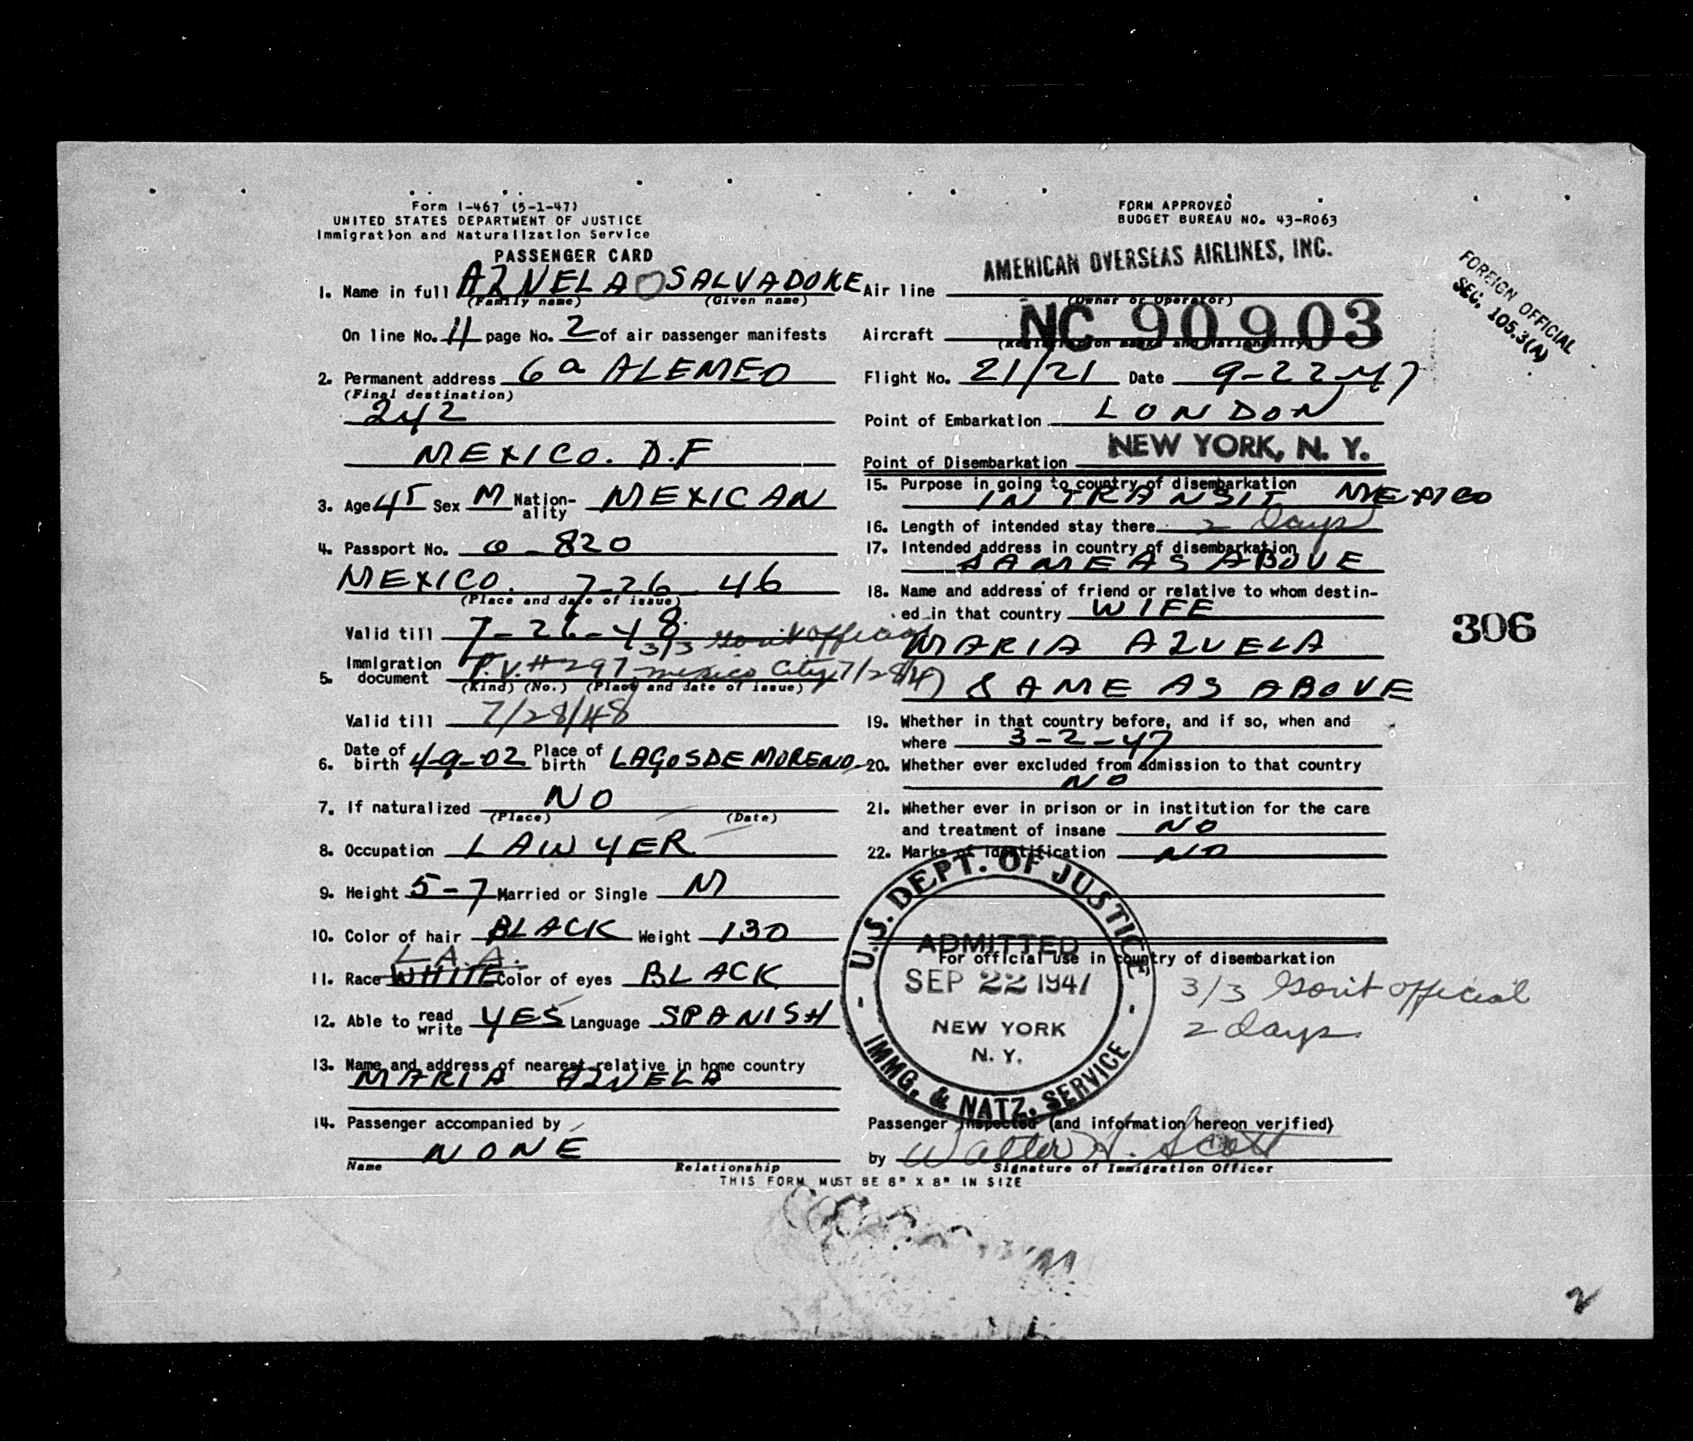 Form I-467 (5-1-47)
UNITED STATES DEPARTMENT OF JUSTICE
Immigration and Naturalization Service
PASSENGER CARD
1. Name in full AZUELA SALVADORE
(Family name) (Given name)
On line No. 11 page No. 2 of air passenger manifests
2. Permanent address 6a ALEMEO
(Final destination)
242
MEXICO. D.F
3. Age 45 Sex M Nation-ality MEXICAN
4. Passport No. O-820
MEXICO. 7-26-46
(Place and date of issue)
Valid till 7-26-48
3/3 Gov't official
5. Immigration document P.V.# 297 Mexico City 7/28/47
(Kind) (No.) (Place and date of issue)
Valid till 7/28/48
6. Date of birth 4-9-02 Place of birth LAGOS DE MORENO
7. If naturalized NO
(Place) (Date)
8. Occupation LAWYER
9. Height 5-7 Married or Single M
10. Color of hair BLACK Weight 130
L.A.A.
11. Race WHITE Color of eyes BLACK
12. Able to read write YES Language SPANISH
13. Name and address of nearest relative in home country
MARIA AZUELA
14. Passenger accompanied by
NONE
Name Relationship
FORM APPROVED
BUDGET BUREAU NO. 43-R063
AMERICAN OVERSEAS AIRLINES, INC.
Air line
(Owner or Operator)
Aircraft NC 90903
(Registration marks and nationality)
Flight No. 21/21 Date 9-22-47
Point of Embarkation LONDON
Point of Disembarkation NEW YORK, N. Y.
15. Purpose in going to country of disembarkation
IN TRANSIT MEXICO
16. Length of intended stay there 2 days
17. Intended address in country of disembarkation
SAME AS ABOVE
18. Name and address of friend or relative to whom destin-
ed in that country WIFE
MARIA AZUELA
SAME AS ABOVE
19. Whether in that country before, and if so, when and
where 3-2-47
20. Whether ever excluded from admission to that country
NO
21. Whether ever in prison or in institution for the care
and treatment of insane NO
22. Marks of identification NO
For official use in country of disembarkation
3/3 Gov't official
2 days
U.S. DEPT. OF JUSTICE
ADMITTED
SEP 22 1947
NEW YORK
N. Y.
IMMG. & NATZ. SERVICE
Passenger inspected (and information hereon verified)
by Walter H. Scott
Signature of Immigration Officer
THIS FORM MUST BE 6" X 8" IN SIZE
FOREIGN OFFICIAL
SEC. 105.3(A)
306
2